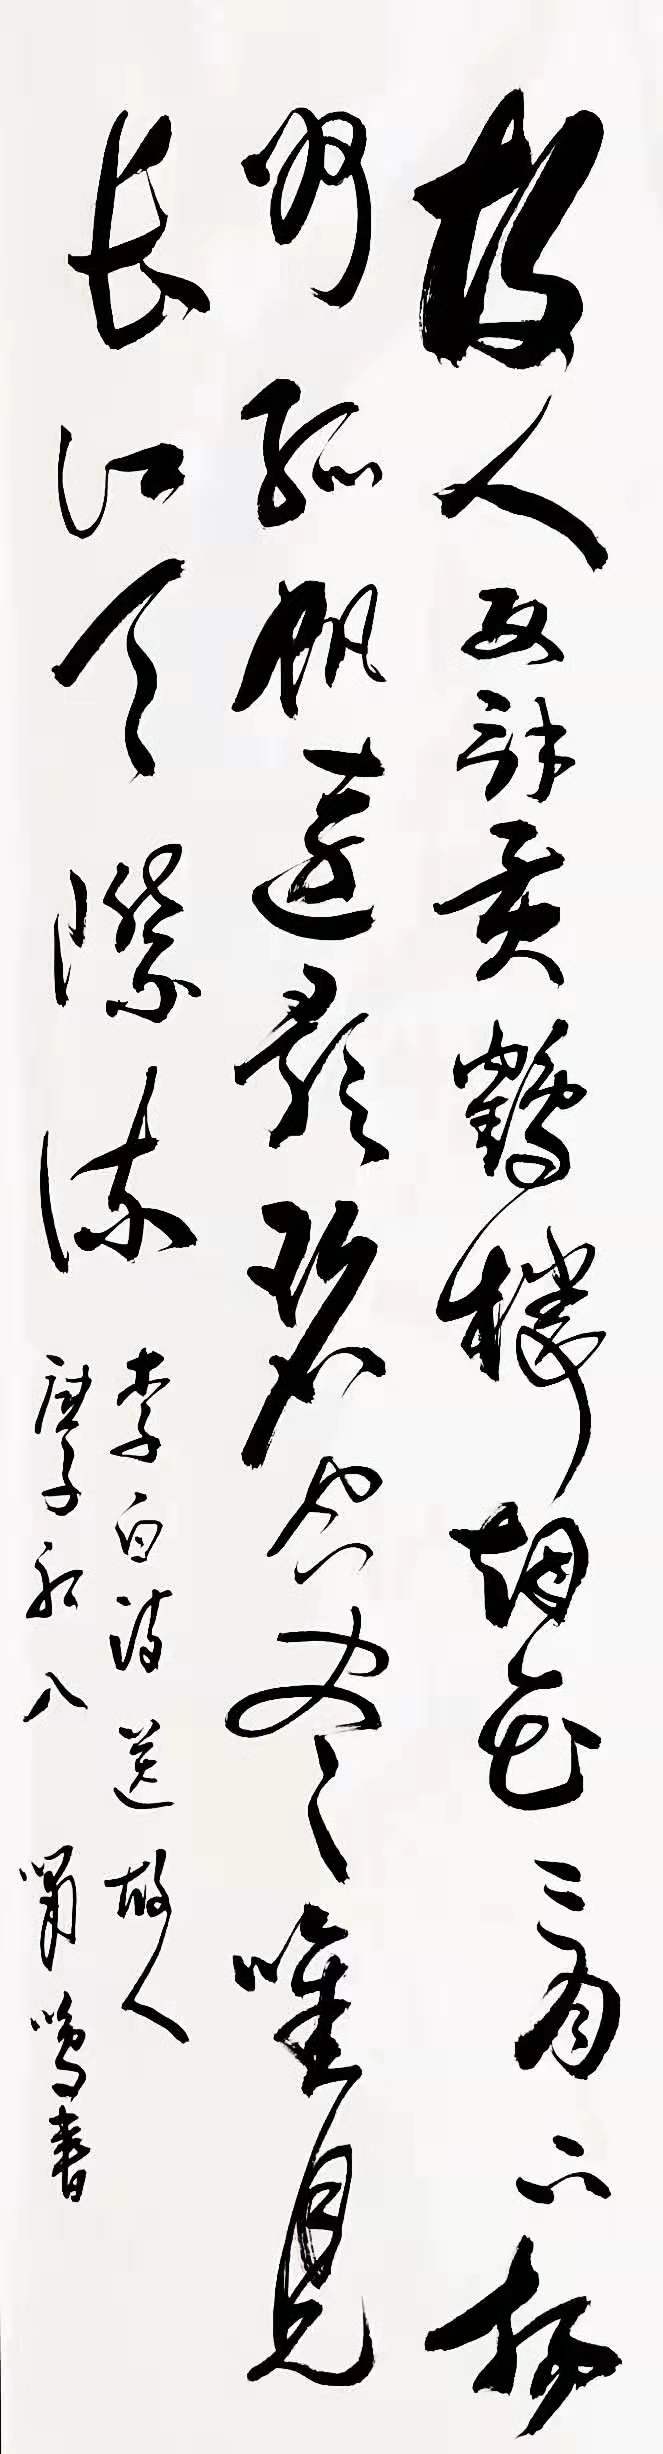 故人西辞黄鶴楼烟花三月下扬
州孤帆遠影碧空尽唯見
长江天際流
李白诗送故人
庚子秋八鸣書